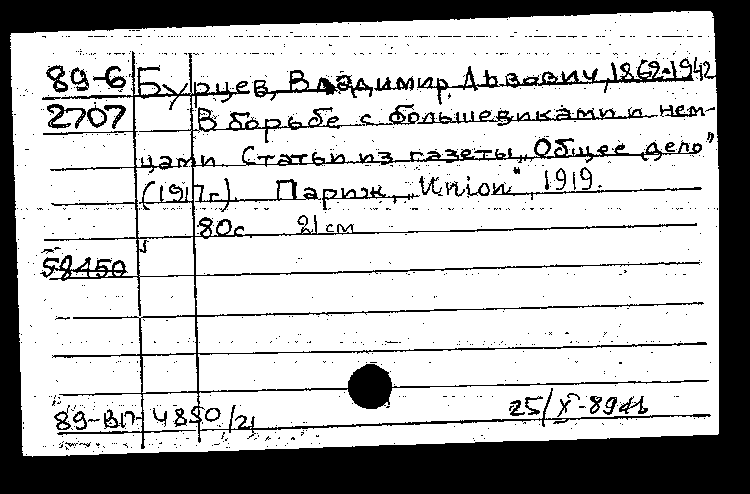 89-6 Бурцев, Владимир Львович, 1862-1942
2707 В борьбе с большевиками и нем-
цами. Статьи из газеты „Общее дело"
(1917г.). Париж, „Union", 1919.
80с. 21см
58450
89-ВП-4850/21
25/X-89